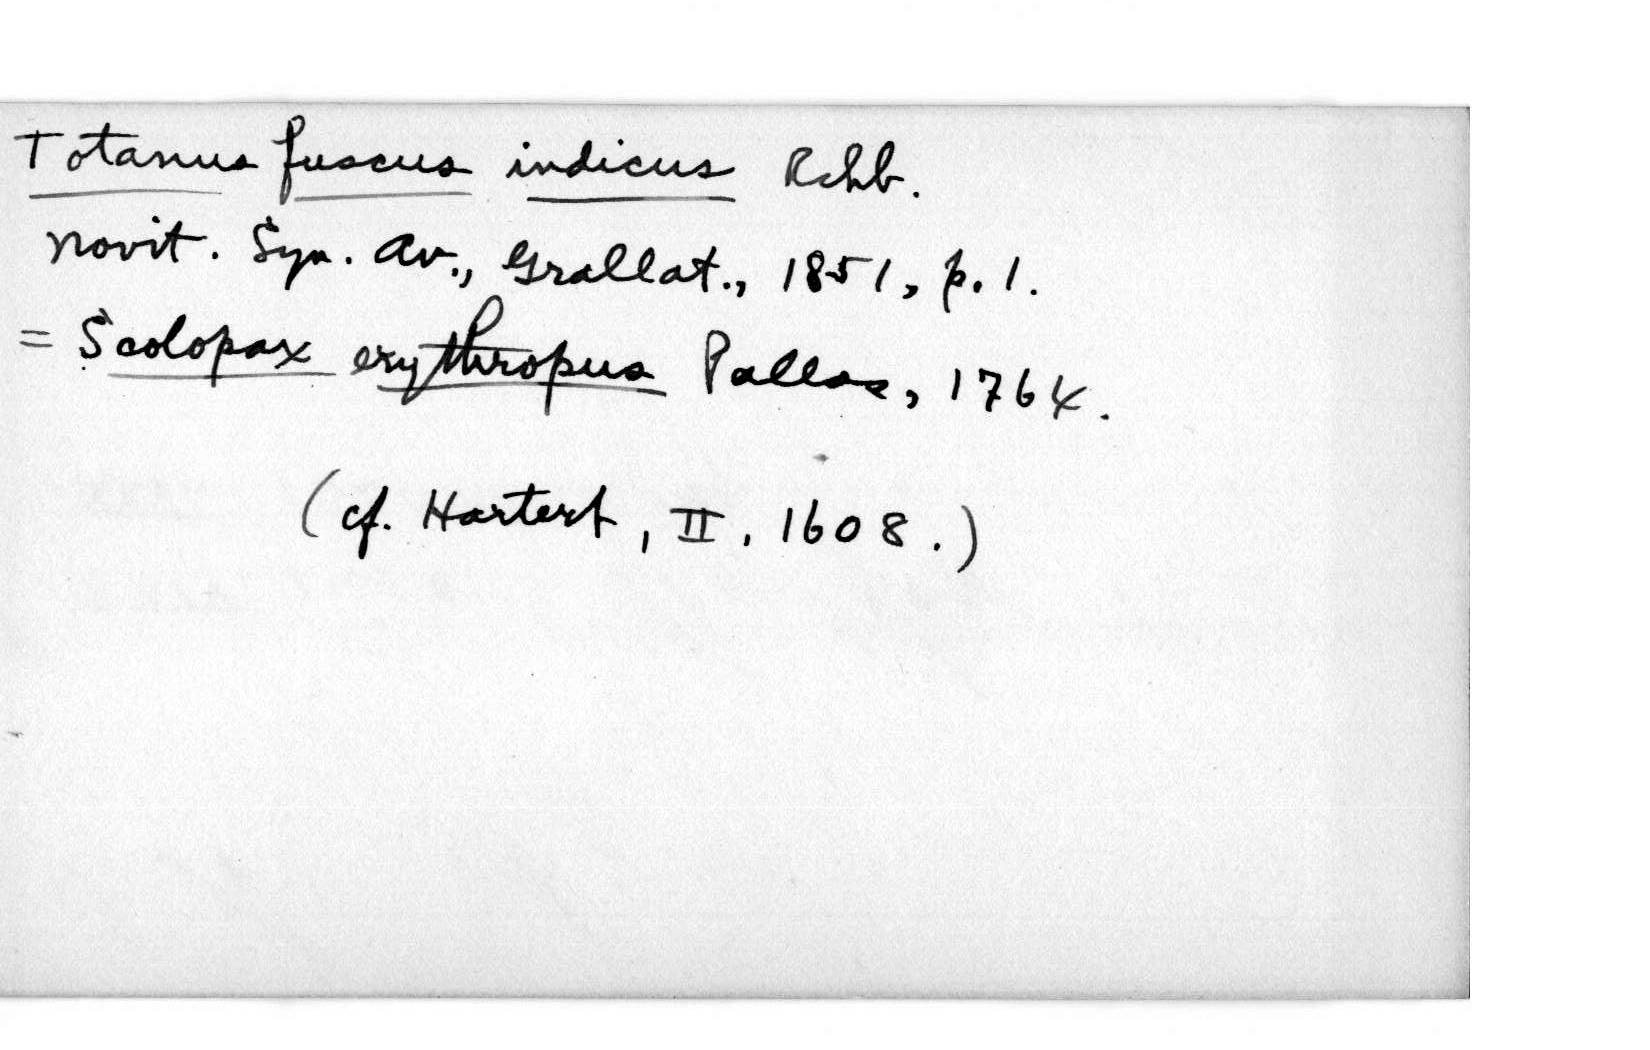 Totanus fuscus indicus Rchb.
Novit. Syn. Av., Grallat., 1851, p. 1.
= Scolopax erythropus Pallas, 1764.
(cf. Hartert, II, 1608.)